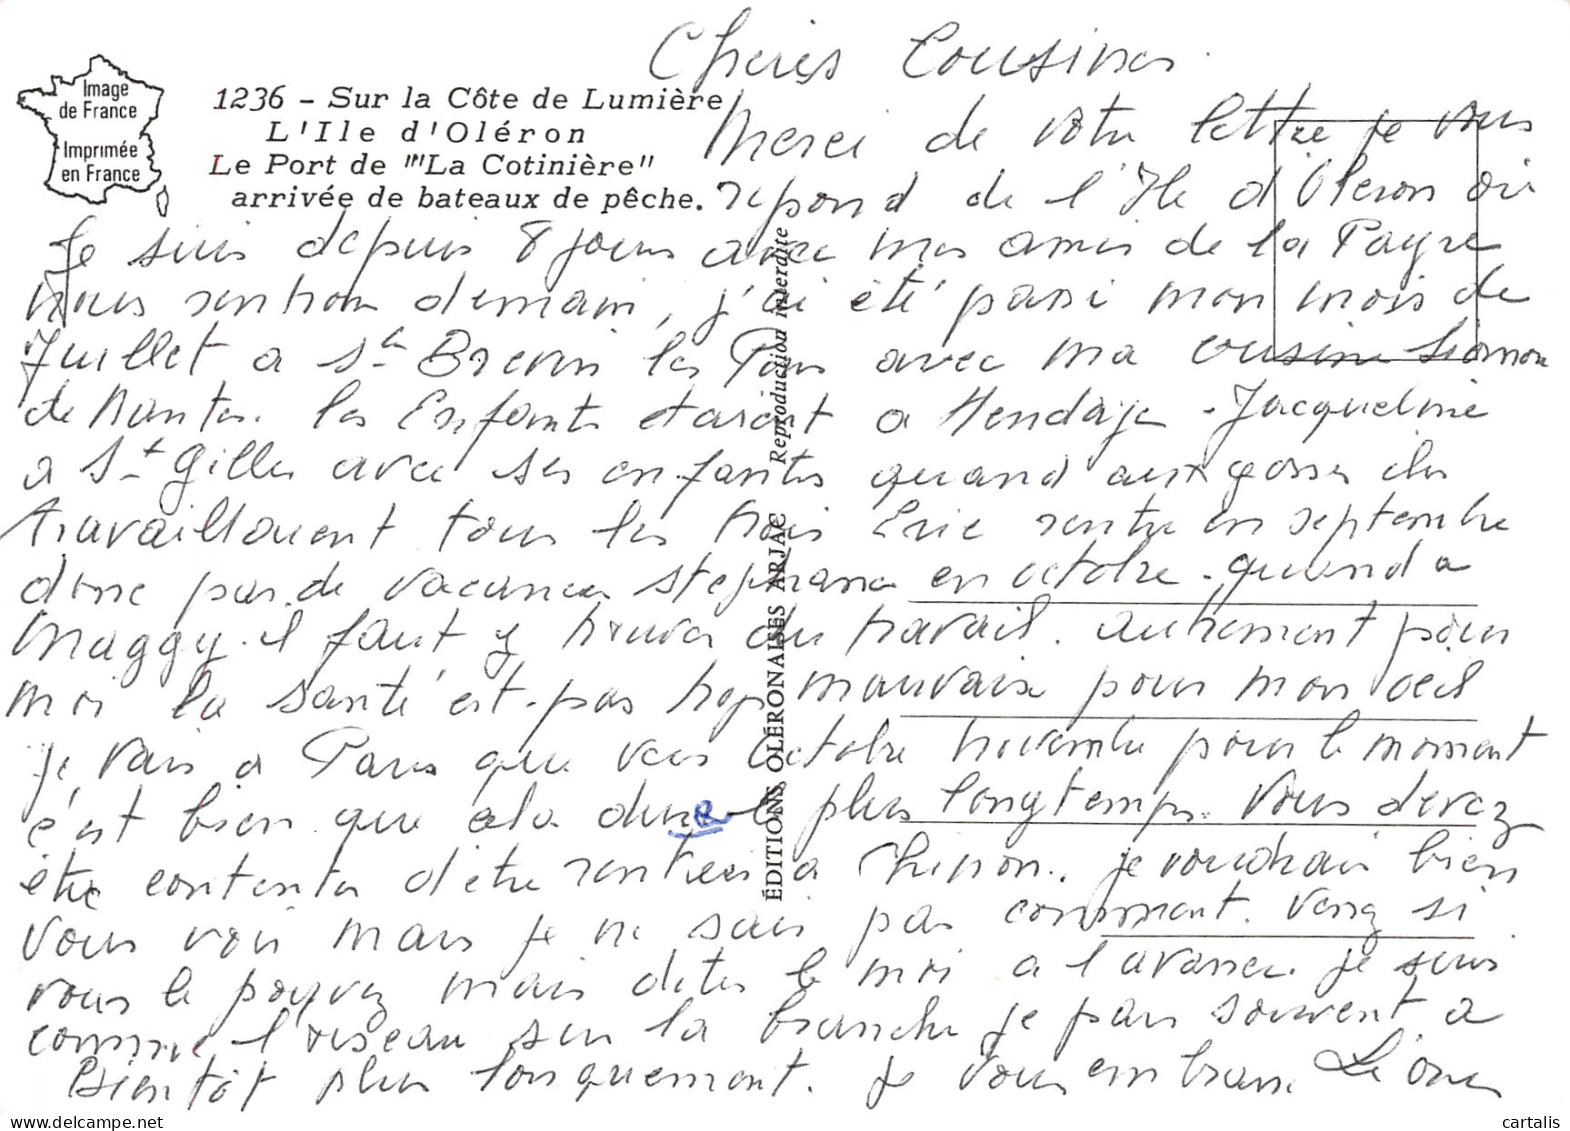 Image
de France
Imprimée
en France
1236 - Sur la Côte de Lumière
L'Ile d'Oléron
Le Port de "La Cotinière"
arrivée de bateaux de pêche.
Reproduction interdite
ÉDITIONS OLÉRONAISES ARJAC
Cheres Cousines
Merci de votre lettre je vous
repond de l'Ile d'Oleron où
Je suis depuis 8 jours avec mes amis de la
nous rentron demain, j'ai été passé mon mois de
Juillet a Brevin les Pins avec ma cousine
de Nantes. les Enfants etaient a Hendaye - Jacqueline
a St Gilles avec ses enfants quand aux gosses ils
travaillouent tous les trois Eric rentre en septembre
donc pas de vacances stephane en octobre - quand a
Maggy il faut y trouver du travail. autrement pour
moi la santé est pas trop mauvaise pour mon oeil
je vais a Paris que vers Octobre novembre pour le moment
c'est bien que cela dure le plus longtemps. Vous devez
être contentes d'être rentrées a Chinon. je voudrais bien
vous voir mais je ne sais pas comment. Venez si
vous le pouvez mais dites le moi a l'avance. je suis
comme l'oiseau sur la branche je pars souvent a
Bientôt plus longuement. je vous embrasse
cartalis